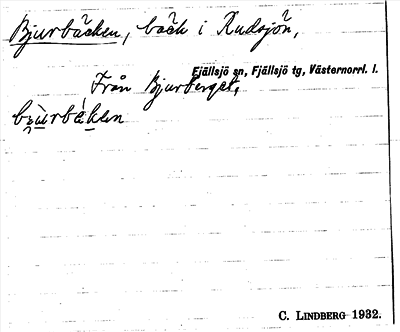 Bjurbäcken, bäck i Rudsjön,
Fjällsjö sn, Fjällsjö tg, Västernorrl. l.
Från Bjurberget,
bjùrbäken
C. LINDBERG 1932.